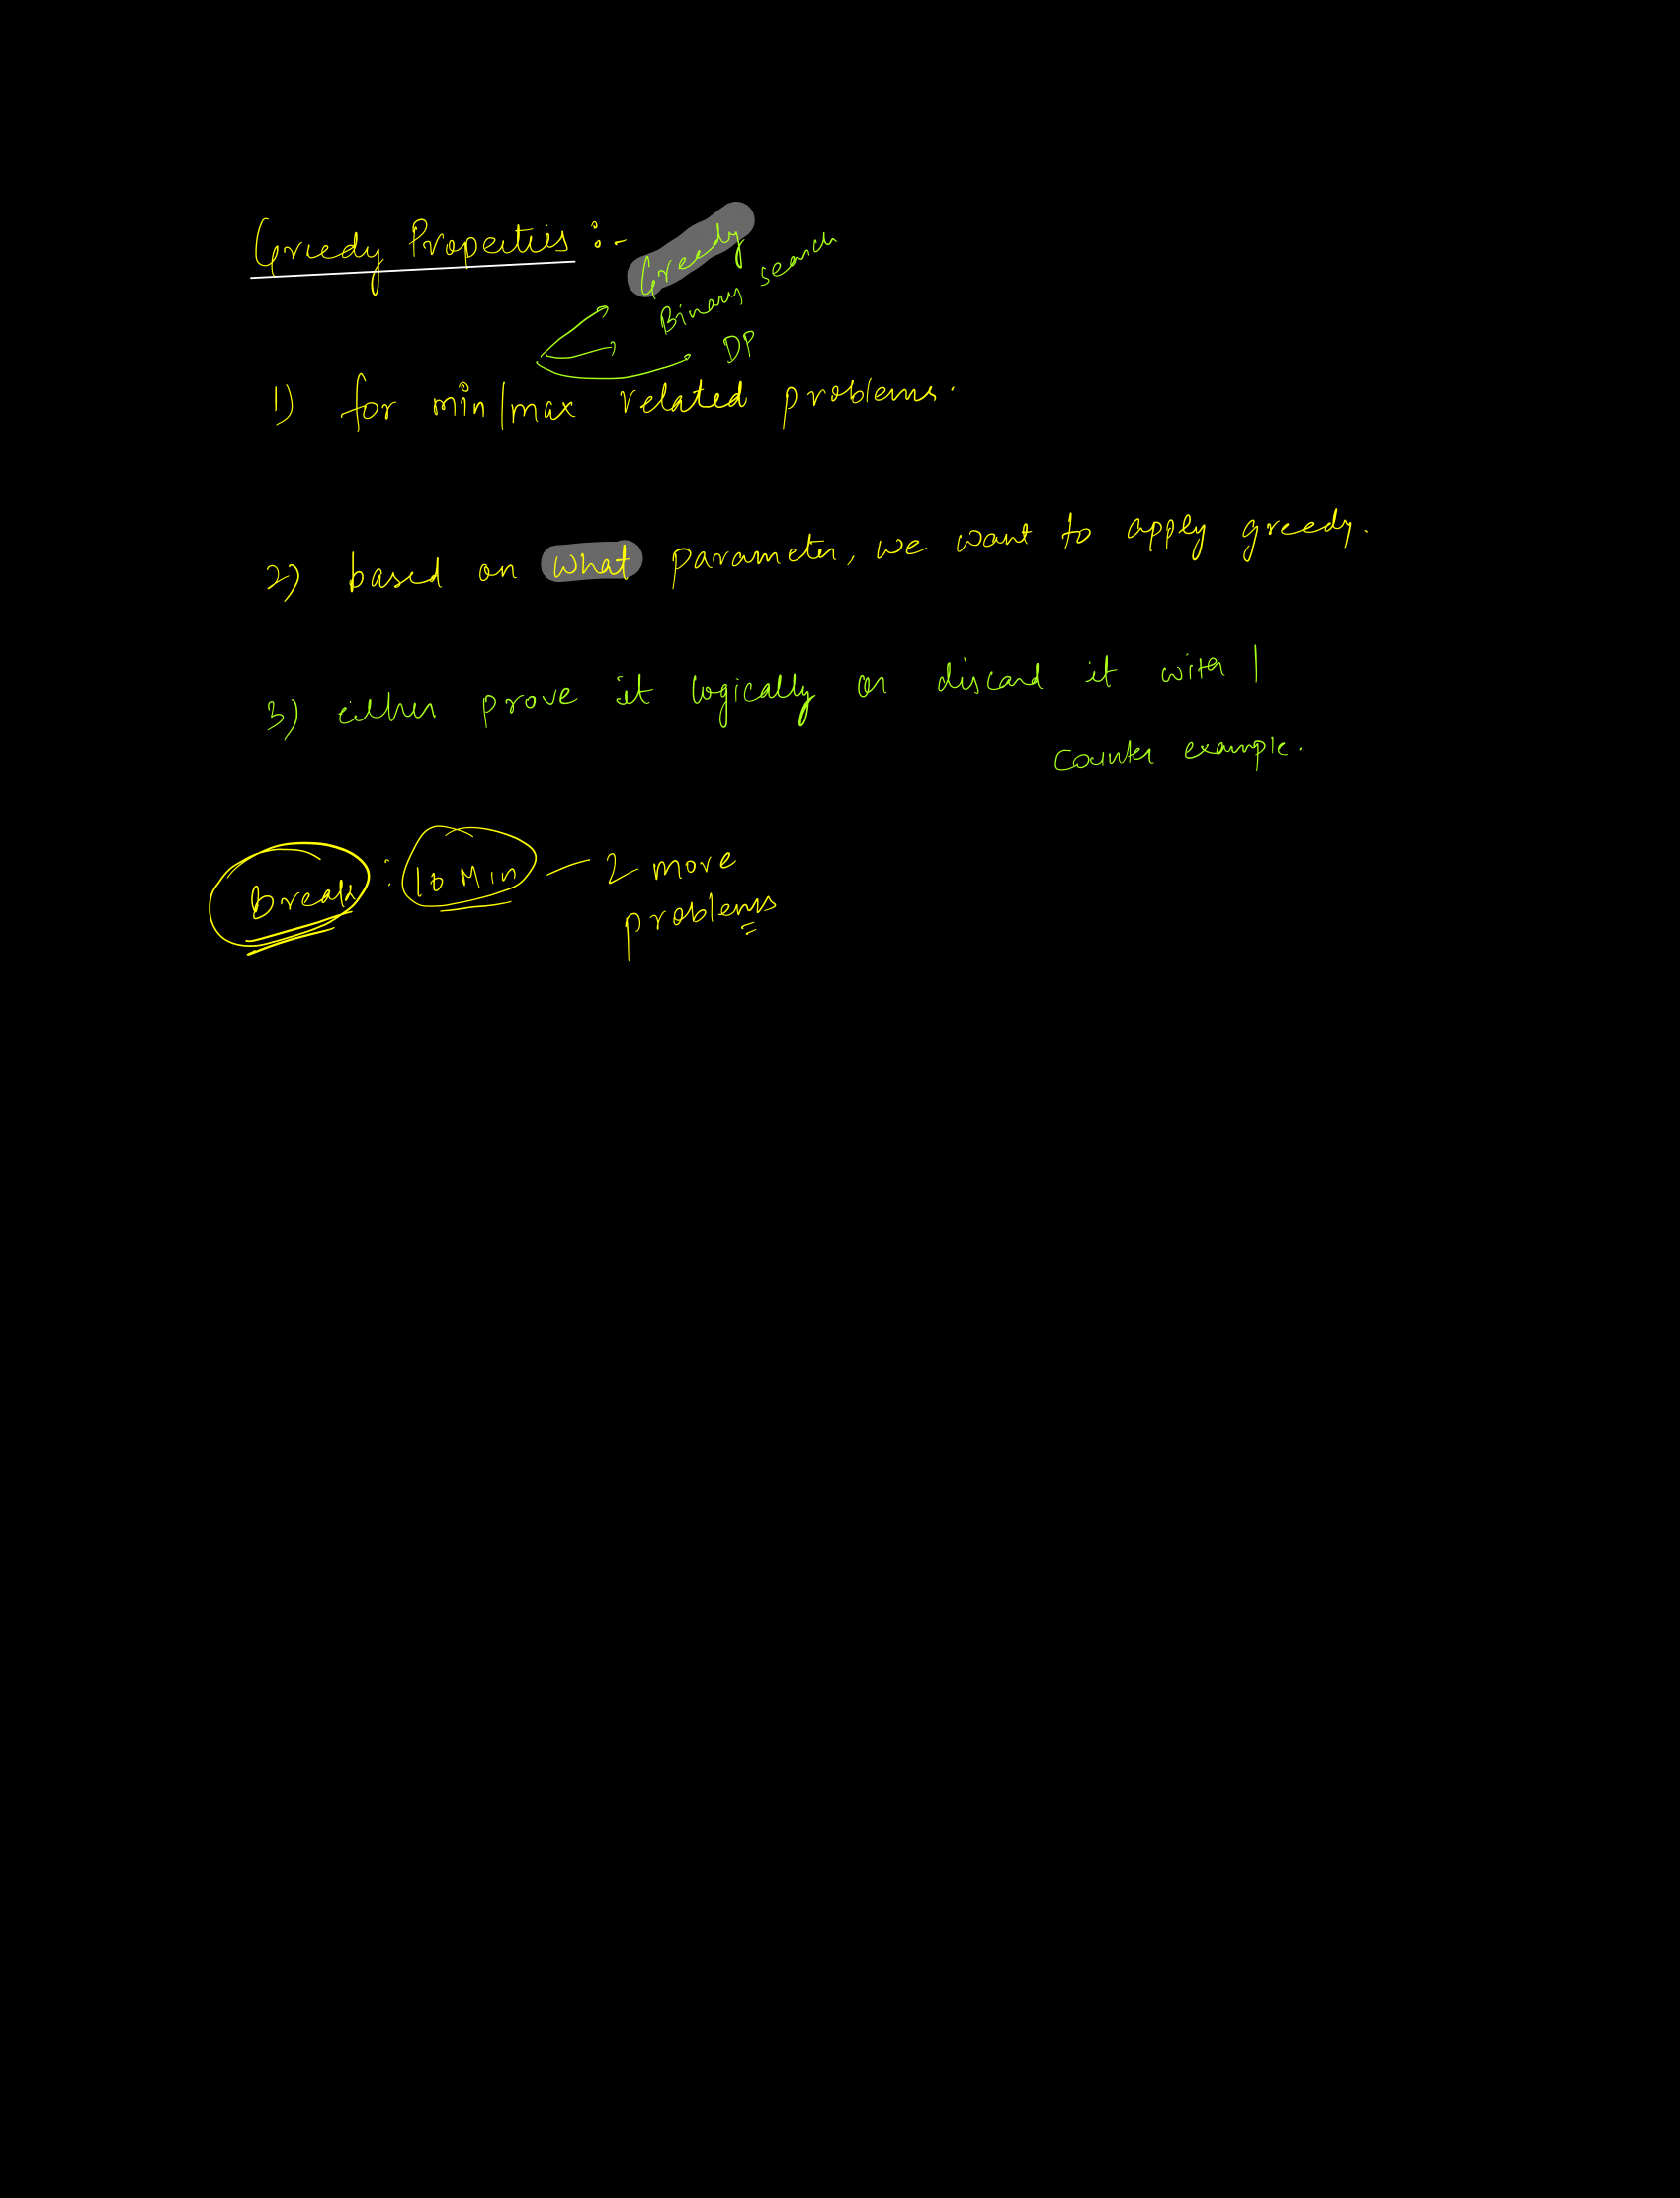 Greedy Properties :-
Greedy
Binary search
DP
1) for min/max related problems.
2) based on what parameter, we want to apply greedy.
3) either prove it logically or discard it with 1
counter example.
Break : 10 Min — 2 more
problems